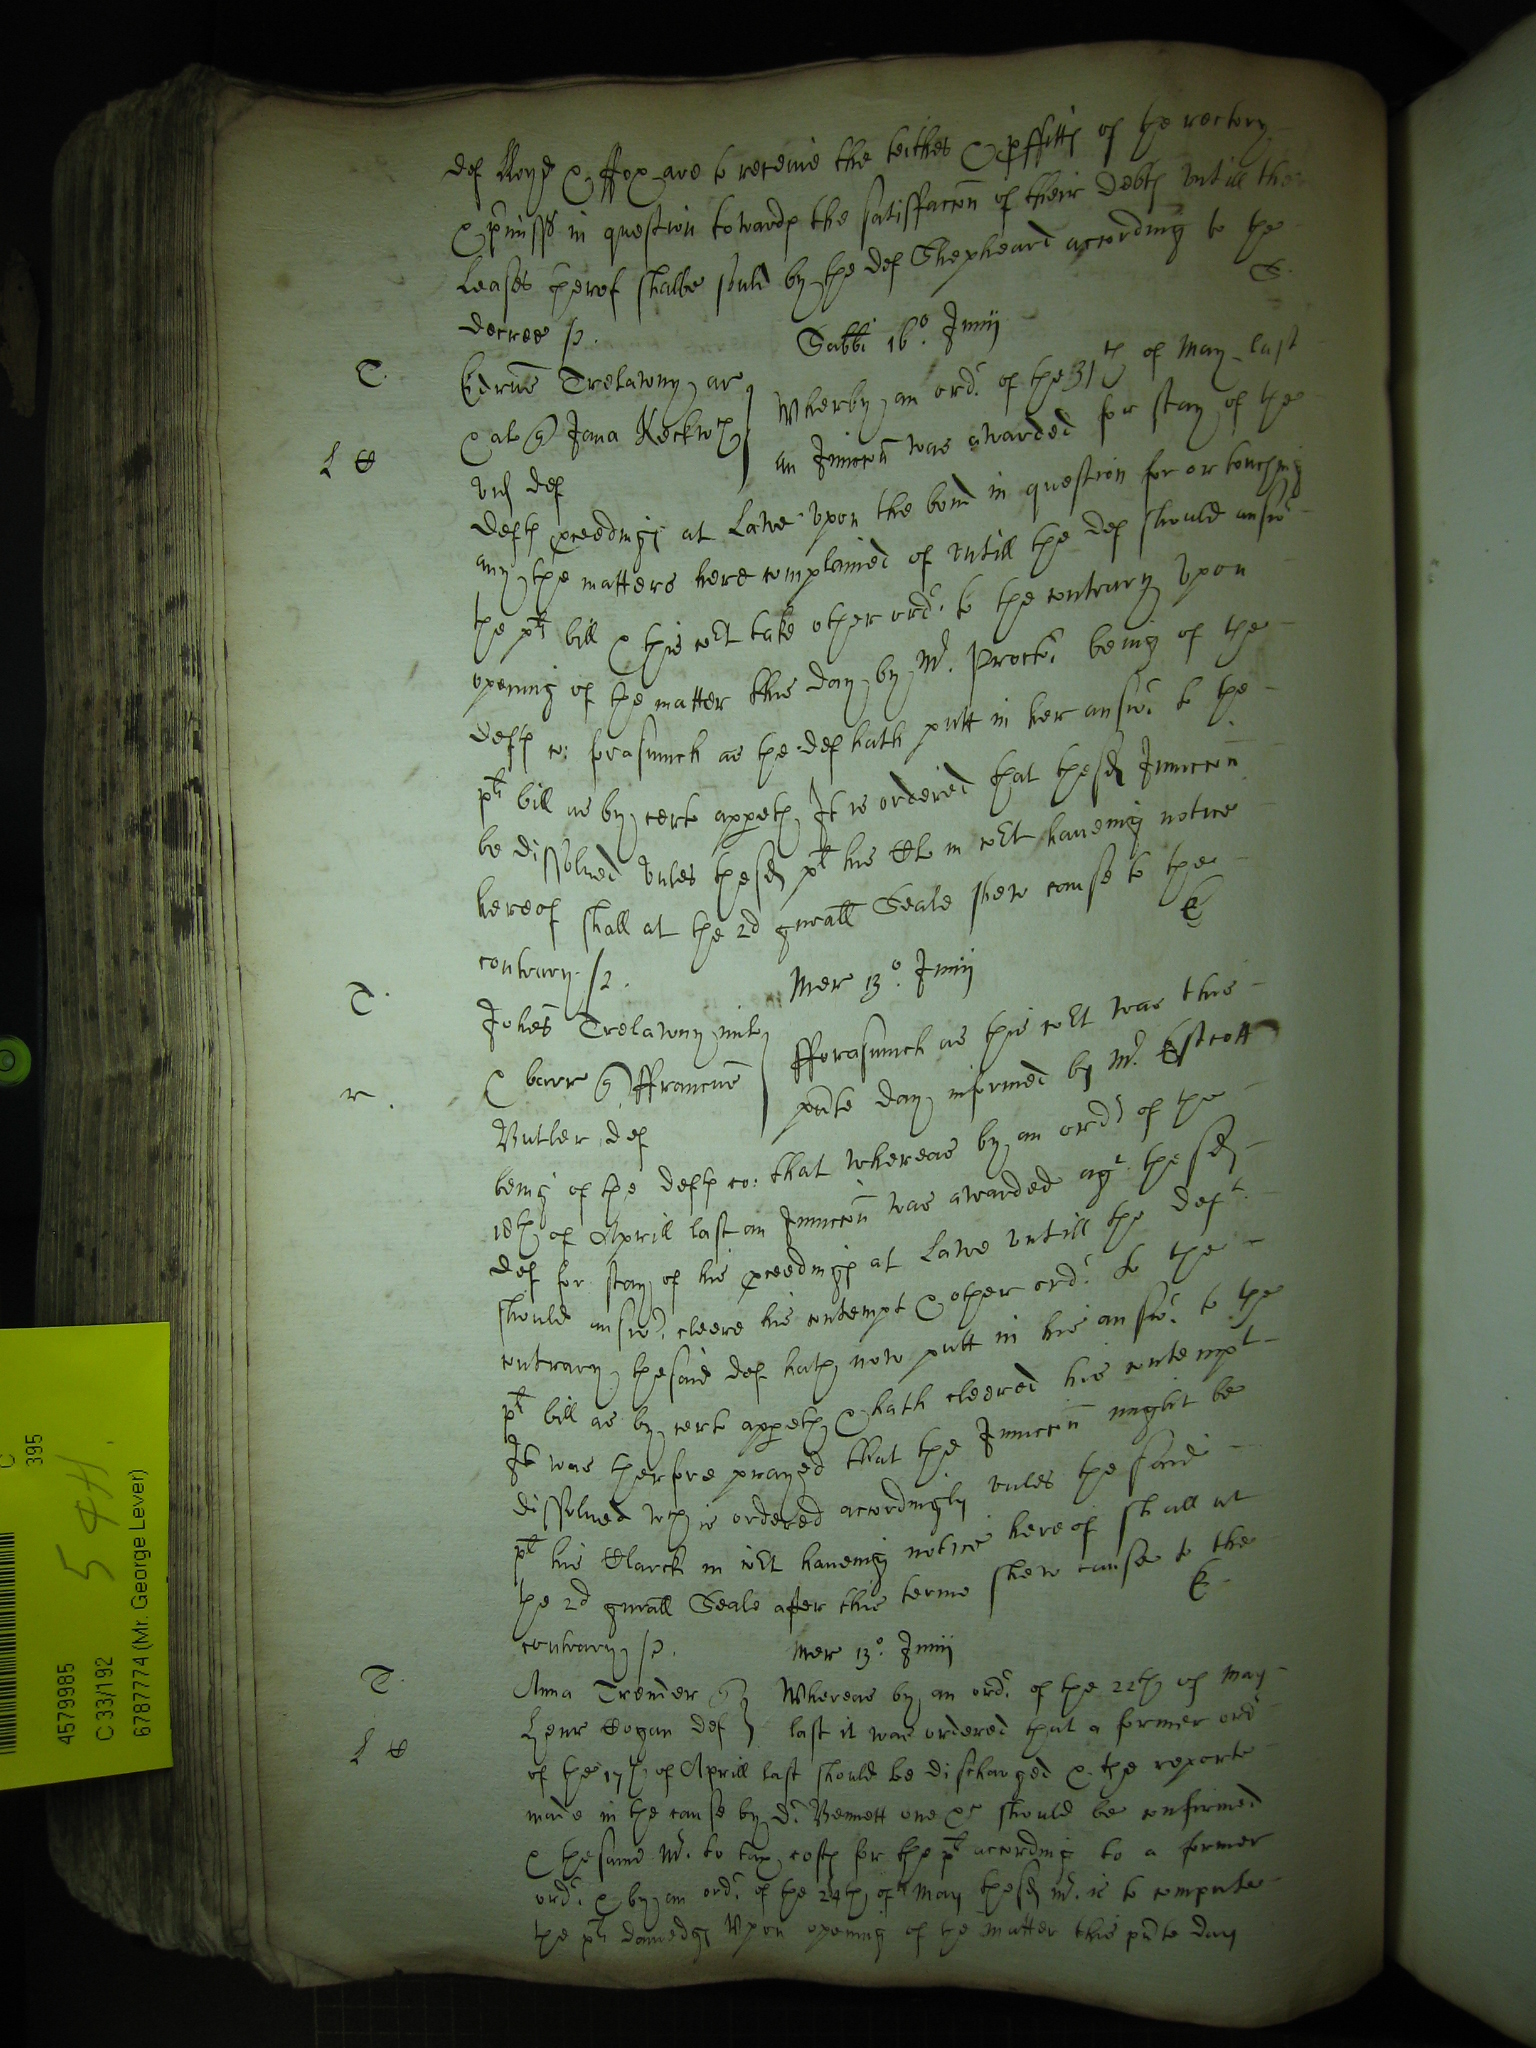 def Lloyd & ffox are to receive the teithes & pffitts of the rectory
& pmisss in question towards the satisfaccon of their debts untill the
leases therof shalbe sould by the def Shepheard according to the
decree /.
S.
Sabbi 16o. Junij
T.
Edrus Trelawny ar
Wherby an ord. of the 31th of May last
& al q Jana Keckwth
an Iniuccon was awarded for stay of the
vid def
defts pceedings at Lawe upon the bond in question for or touching
any the matters here complained of untill the def should answ
the plt bill & this cort take other ord. to the contrary Upon
opening of the matter this day by Mr. Procto. being of the
defts co: forasmuch as the def hath putt in her answ. to the
plt bill as by certe appeth It is ordered that the sd Iniuccon
be dissolued vnles the sd plt his Clk in cort haueing notice
hereof shall at the 2d gnrall Seale shew cause to the
contrary. /.
E
Mer 13o. Junij
T.
Johes Trelawny mil
fforasmuch as this cort was this
& barr q ffrancus
pnte day informed by Mr. Estcott
r.
Butler def
being of the defts co: that whereas by an ord of the
18th of Aprill last an Iniuccon was awarded agt. the sd
def for stay of his pceedings at Lawe untill the deft.
should answ. cleere his contempt & other ord. to the
contrary the said def hath now putt in his answ. to the
plt bill as by certe appeth & hath cleered his contempt
It was therfore prayed that the Iniuccon might be
dissolued wch is ordered accordingly vnles the said
plt his Clarck in cort haueing notice hereof shall at
the 2d gnrall Seale after this terme shew cause to the
contrary /.
E
Mer 13o. Junij
T.
Anna Trender q
Whereas by an ord. of the 22th of May
Henr Cogan def
last it was ordered that a former ord
of the 17th of Aprill last should be discharged & the reporte
made in the cause by Dr. Bennett one &c should be confirmed
& the same Mr. to tax costs for the plt according to a former
ord. & by an ord. of the 24th of May the sd Mr. is to compute
the plt damedgs Upon opening of the matter this pnte day
4579985
C 33/192
6787774 (Mr. George Lever)
C
395